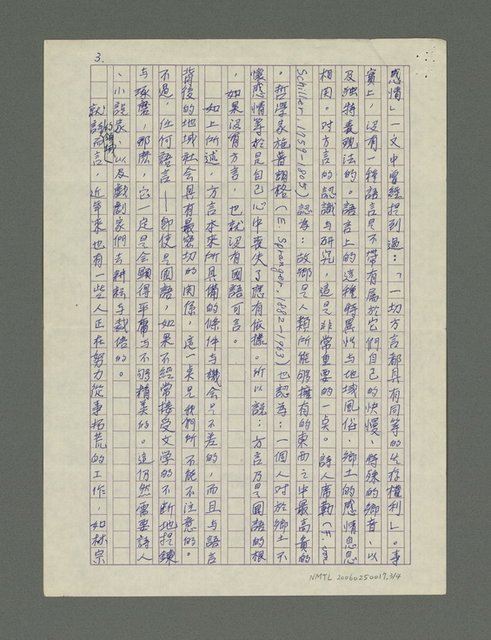 3.
感情」一文中曾經提到過:「一切方言都具有同等的生存權利」。事
實上,沒有一種語言是不帶有屬於它們自己的快慢、特殊的鄉音,以
及獨特表現法的。語言上的這種特異性与地域風俗、鄉土的感情息息
相関。对方言的認識与研究,這是非常重要的一点。詩人席勒(F. von
Schiller. 1759-1805)認為:故鄉是人類所能夠擁有的東西之中最高貴的
。哲學家施普朗格(E. Spranger. 1882-1963)也認為:一個人对於鄉土不
懷感情等於是自己心中喪失了應有依據。所以說:方言乃是國語的根
,如果沒有方言,也就沒有國語可言。
如上所述,方言本來所具備的條件与機会是不差的,而且与語言
背後的地域社会具有最密切的関係,這一点是我們所不能不注意的。
不過,任何語言——即使是國語,如果不經常接受文学的不斷地提鍊
与琢磨,那麽,它一定是会顯得平庸与不够精美的。這仍然需要詩人
、小說家,以及戲劇家們去耕耘与栽培的。
就詩的領域而言,近年來也有一些人正在努力從事拓荒的工作,如林宗
NMTL 20060250017.3/4